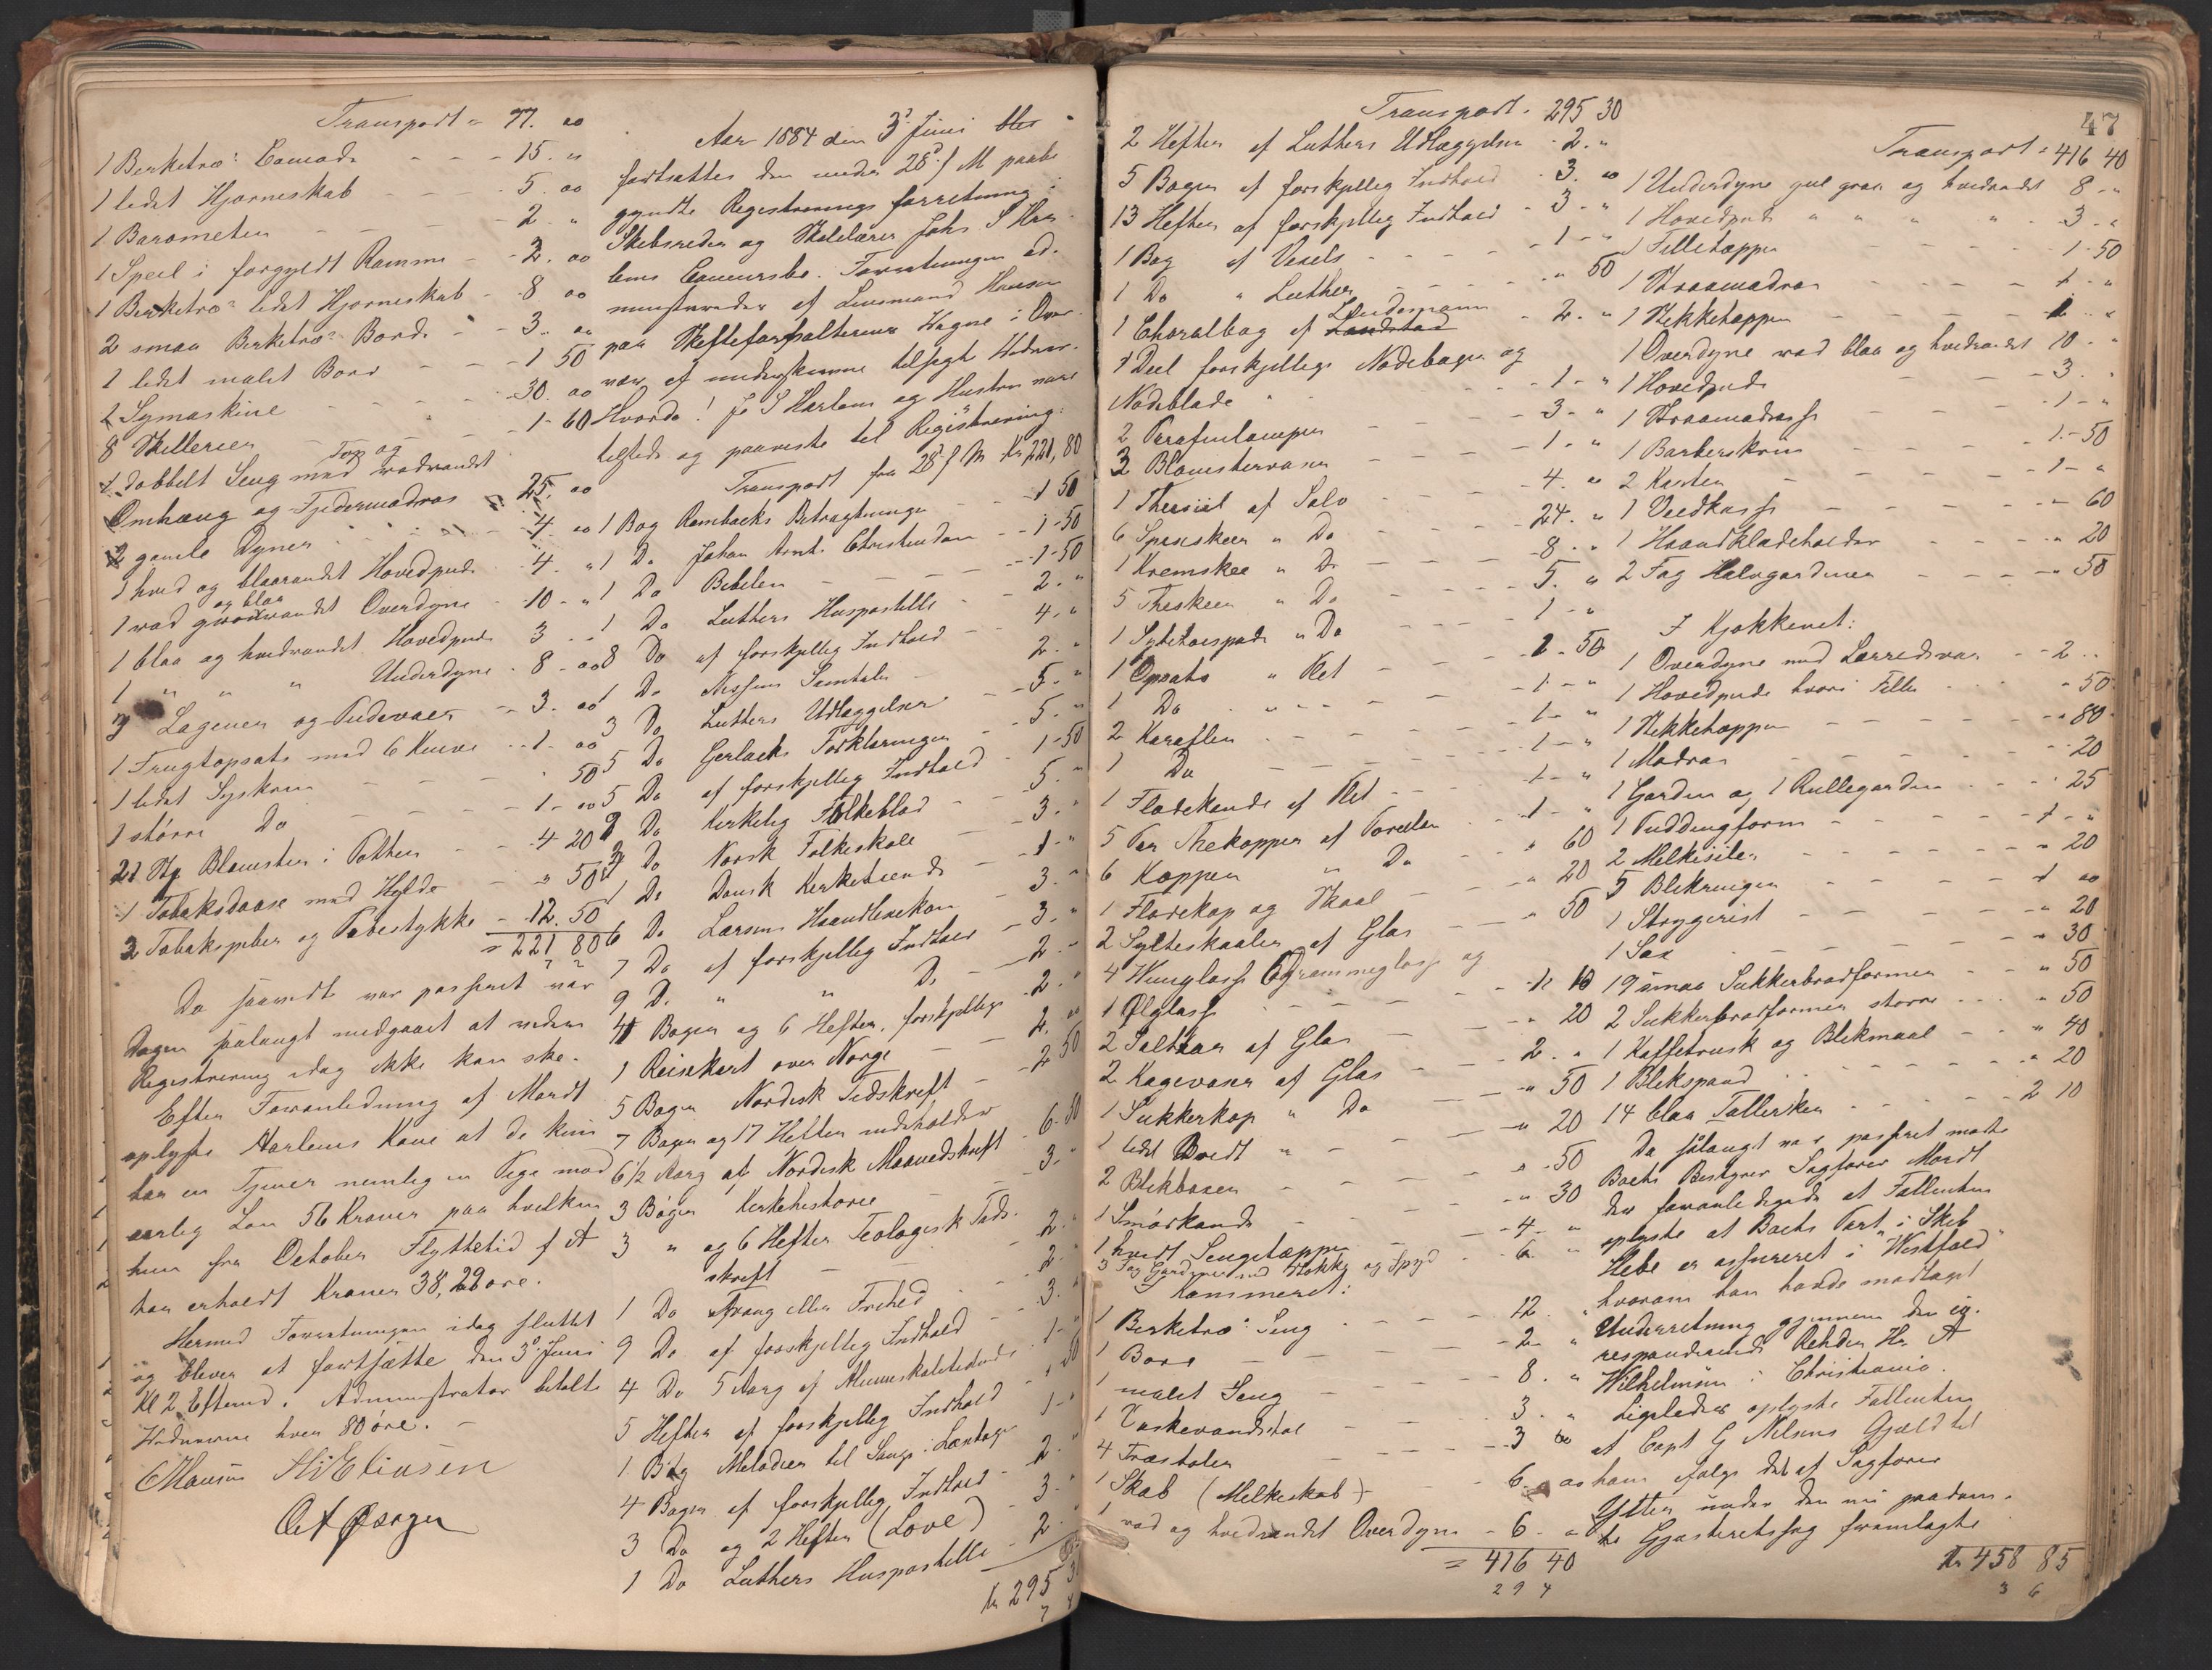 Transport = 77. oo
1 Berketræ's Comode - - - 15. "
1 lidet Hjørneskab - - - 5. oo
1 Barometer - - - 2. "
1 Speil i forgyldt Ramme - 2. oo
1 Berketræ's lidet Hjørneskab - 8 oo
2 smaa Berketræ's Borde - 3. oo
1 lidet malet Bord - - 1 50
1 Symaskine - - 30. oo
8 Skillerier - - 1-60
Top og
1 dobbelt Seng med rødrandet
Omhæng og Fjedermadras 25. oo
2 gamle Dyner - - 4. oo
1 hvid og blaarandet Hovedpude 4. "
og blaa
1 rød grønrandet Overdyne - 10 - "
1 blaa og hvidrandet Hovedpude 3 - "
1 " " " Underdyne - 8 - oo
7 Lagener og Pudevaer - 3. oo
1 Frugtopsats med 6 Knive - 1 - oo
1 lidet Syskrin - - 50
1 større Do - - 1 - oo
21 Stk Blomster i Potter - 4 20
1 Tobaksdaase med Hylde - " 50
3 Tobakspiber og Pibestykke - 12. 50
= 221 80
Da saavidt var passeret var
Dagen saalangt medgaaet at videre
Registrering idag ikke kan ske.
Efter Foranledning af Mordt
oplyste Harlems Kone at de kun
har en Tjener nemlig en Pige med
aarlig Løn 56 Kroner paa hvilken
hun fra October Flyttetid f A
har erholdt Kroner 38,22 øre.
Hermed Forretningen idag sluttet
og bliver at fortsætte den 3d Juni
Kl 2 Efterm. Administrator betalte
Vidnerne hver 80 øre. -
C Hansen H Eliasen

Aar 1884 den 3d Juni blev
fortsættes den under 28d f M paabe
gyndte Registrerings forretning i
Skibsreder og Skolelærer Johs S Har
lems Concursbo. Forretningen ad-
ministreredes af Lensmand Hansen
paa Skifteforvalterens Vegne i Over-
vær af underskrevne tilsagte Vidner.
Hvorda! Jo S Harlem og Hustru vare
tilstede og paaviste til Registrering:
Transport fra 28d f M Kr 221,80
1 Bog Rambachs Betragtninger - 1 50
1 Do Johan Arnts Christendom - 1-50
1 Do Bibelen - - - 1-50
1 Do Luthers Huspostille - 2. "
8 Do af forskjellig Indhold - 4. "
1 Do Nissens Samtaler - 2. "
3 Do Luthers Udlæggelser - 5. "
5 Do Gerlachs Forklaringer - 5. "
5 Do af forskjellig Indhold - 1-50
9 Do Kirkelig Folkeblad - 5. "
2 Do Norsk Folkeskole - 3. "
1 Do Dansk Kirketidende - 1 "
6 Do Larsens Haandlexikon - 3. "
7 Do af forskjellig Indhold - 3. "
9 Do " " Do - 2 - "
4 Bøger og 6 Hefter, forskjellige 2. "
1 Reisekart over Norge - 2. oo
5 Bøger Nordisk Tidskrift - 2 50
7 Bøger og 17 Hefter indeholder
6 1/2 Aarg af Nordisk Maanedskrift - 6. 50
3 Bøger Kirkehistorie - 3. "
3 " og 6 Hefter Teologisk Tids-
skrift - - 2. "
1 Do Tvang eller Frihed - 2. "
9 Do af forskjellig Indhold - 3. "
4 Do 5 Aarg af Almueskoletidende 1 - "
5 Hefter af forskjellig Indhold - " 50
1 Bog Melodier til Sange i Læsebogen 1 - "
4 Bøger af forskjellig Indhold - 2. "
3 Do og 2 Hefter (Love) - 3. "
1 Do Luthers Huspostille - 2. "
Kr 295 30

47
Transport. 295 30
2 Hefter af Luthers Udlæggelser - 2. "
5 Bøger af forskjellig Indhold - 3. oo
13 Hefter af forskjellig Indhold - 3 - "
1 Bog af Vexels - - - 1 - "
1 Do " Luther - - " 50
Lindemann
1 Choralbog af Landstad - 2. "
1 Deel forskjellige Nodebøger og
Nodeblade - - 1 - "
2 Parafinlamper - - 3 - "
3 Blomstervaser - - 1 - "
1 Thesiil af Sølv - - 4. oo
6 Spiseskeer " Do - - 24. "
1 Kremskee " Do - - 8. "
5 Theskeer " Do - - 5. "
1 Syltetøispade " Do - - 1 - "
1 Opsats " Plet - - 1. 50
1 Do " " - - 1 - "
2 Karafler - - 1 - "
1 Do - - 1 - "
1 Flødekande af Plet - - 1 - "
5 Par Thekopper af Porcelæn - 1 - "
6 Kopper " Do - " 60
1 Flødekop og Skaal - " 20
2 Sylteskaaler af Glas - " 50
4 Vinglas 6 Drammeglas og
1 Ølglas - - 1 10
2 Saltkar af Glas - " 20
2 Kagevaser af Glas - 2. "
1 Sukkerkop " Do - " 50
1 lidet Bredt " - " 20
2 Blikbøxer - - " 50
1 Smørkande - - " 30
1 hvidt Sengetæppe - 4 - "
3 Fag Gardiner med Stokke og Spyd - 6. "
Kammeret:
1 Berketræ's Seng - - 12. "
1 Bord - - 2 - "
1 malet Seng - - 8. "
1 Vaskevandsstol - - 3. "
4 Træstoler - - 3 60
1 Skab (Melkeskab) - 6. oo
1 rød og hvidrandet Overdyne - 6. "
= 416 40

Transport = 416 40
1 Underdyne gul graa og hvidrandet 8 - "
1 Hovedpude " " " " - 3 - "
1 Filletæppe - - 1-50
1 Straamadras - - 1 - "
1 Stikketæppe - - 2. "
1 Overdyne rød blaa og hvidrandet 10 - "
1 Hovedpude - - 3. "
1 Straamadras - - 1 - "
1 Barberskrin - - 1.-50
2 Kasser - - 1 - "
1 Vedkasse - - " 60
1 Haandklædeholder - " 20
2 Fag Halvgardiner - " 50
I Kjøkkenet:
1 Overdyne med Lærredsvar - 2 - "
1 Hovedpude hvori Filler - " 50
1 Stikketæppe - - " 80
1 Madras - - " 20
1 Gardin og 1 Rullegardin - " 25
1 Puddingform - - 1 - "
2 Melkesiler - - " 20
5 Blikringer - - 1 oo
1 Strygerist - - " 20
1 Sax - - " 30
19 smaa Sukkerbrødformer - " 50
2 Sukkerbrødformer større - " 50
1 Kaffetrusk og Blikmaal - " 40
1 Blikspand - - " 20
14 blaa Tallerken - - 2 10
Da sålangt var passeret mødte
Boets Bestyrer Sagfører Mordt
der foranledigede at Fallenten
oplyste at Boets Part i Skib
Hebe er assureret i "Westfold"
hvorom han havde modtaget
Underretning gjennem den co-
responderende Rehder Hr A
Wilhelmsen i Christiania.
Ligeledes oplyste Fallenten
at Capt G Nilsens Gjæld til
ham ifølge det af Sagfører
Ytter under den nu paadøm-
te Gjæsteretssag fremlagte
Kr 458 85